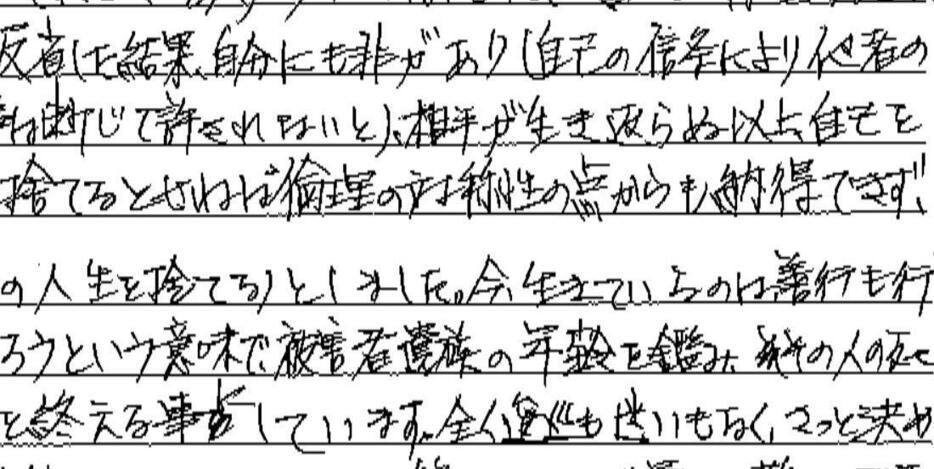 反省した結果、自分にも非があり(自己の信条により他者の
は断じて許されないと)、相手が生き返らぬ以上自己を
捨てるとせねば倫理の対称性の点からも納得できず、
の人生を捨てる)としました。今、生きているのは、善行も行
ろうという意味で、被害者遺族の年齢を鑑み、その人の死を
を終える事としています。全く迷いもなく、さっと決め